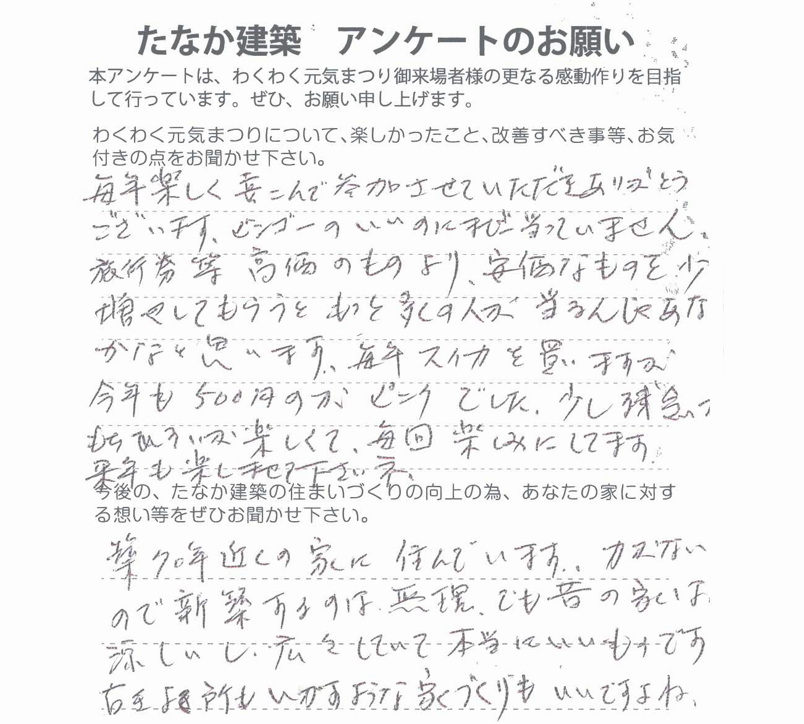 たなか建築　アンケートのお願い
本アンケートは、わくわく元気まつり御来場者様の更なる感動作りを目指
して行っています。ぜひ、お願い申し上げます。
わくわく元気まつりについて、楽しかったこと、改善すべき事等、お気
付きの点をお聞かせ下さい。
毎年楽しく喜こんで参加させていただきありがとう
ございます。ビンゴーのいいのにまだ当っていません。
旅行券等高価のものより、安価なものを少
増やしてもらうともっと多くの人が当るんじゃあな
かなと思います。毎年スイカを買いますが
今年も500円のが ピンク でした。少し残念で
もちひろいが楽しくて、毎回楽しみにしてます。
来年も楽しませて下さいネ。
今後の、たなか建築の住まいづくりの向上の為、あなたの家に対す
る想い等をぜひお聞かせ下さい。
築70年近くの家に住んでいます。カネない
ので新築するのは無理、でも昔の家いは
涼しいし、広々していて本当にいいものです
古き よき所もいかすような家づくりも いいですよね。